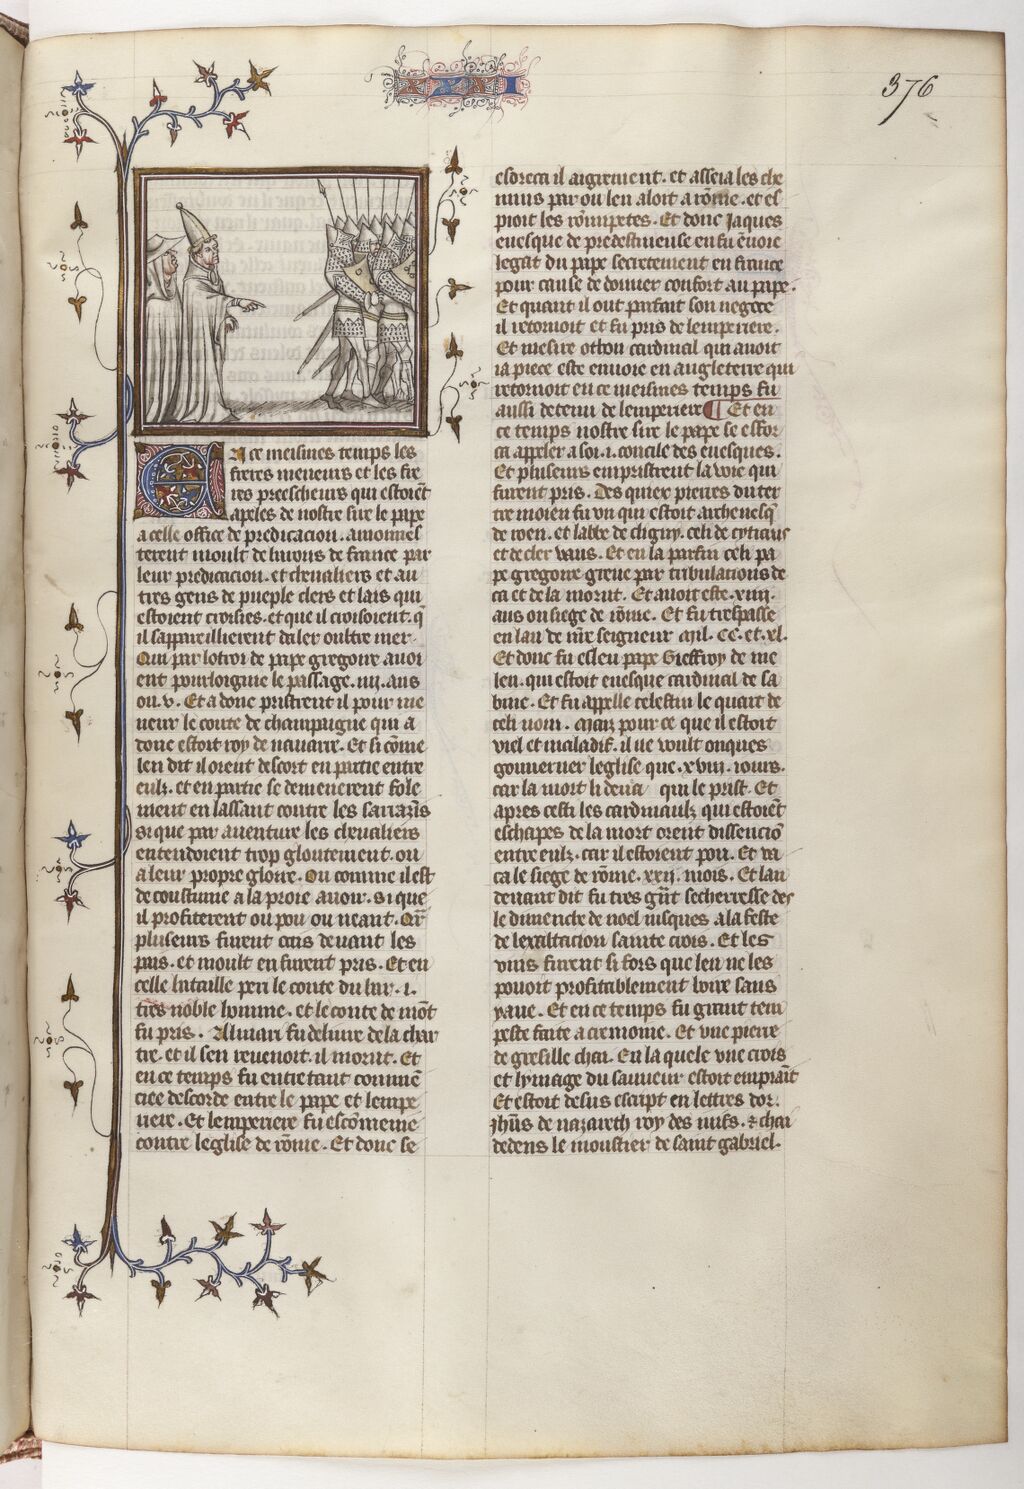 XXXI
376
En ce meismes temps les
freres meneurs et les fre
res preescheurs qui estoiēt
apeles de nostre sire le pape
a celle office de predicacion. amonnes
terent moult de barons de france par
leur predicacion. et cheualiers et au
tres gens de pueple clers et lais qui
estoient croisies. et que il croisoient. q̄
il sappareillierent daler oultre mer.
Qui par lotroi de pape gregoire auoi
ent pourloignie le passage. iiij. ans
ou. v. Et a donc pristrent il pour me
neur le conte de champaigne qui a
donc estoit roy de nauarre. Et si cōme
len dit il orent descort en partie entre
eulz. et en partie se demenerent fole
ment en lassant contre les sarrazīs
si que par auenture les cheualiers
entendoient trop gloutement. ou
a leur propre gloire. Ou comme il est
de coustume a la proie auoir. si que
il profiterent ou pou ou neant. Car
pluseurs furent ocis deuant les
pris. et moult en furent pris. Et en
celle bataille peri le conte du bar. i.
tres noble homme. et le conte de mōt
fu pris. Almari fu deliure de la char
tre. et il sen reuenoit. il morut. Et
en ce temps fu entretant commen̄
ciee descorde entre le pape et lempe
riere. Et lemperiere fu escōmenie
contre leglise de rōme. Et donc se
esdreca il aigrement. et asseia les che
mins par ou len aloit a rōme. et es
pioit les rōmpetes. Et donc Jaques
euesque de predestineuse en fu ēuoie
legat du pape secretement en france
pour cause de donner confort au pape.
Et quant il out parfait son negoce
il retornoit et fu pris de lemperiere.
Et mesire othon cardinal qui auoit
ia piece este enuoie en angleterre qui
retornoit en ce meismes temps fu
aussi detenu de lemperiere ¶ Et en
ce temps nostre sire le pape se effor
ca appeler a soi. i. concile des euesques.
Et pluseurs empristrent la voie qui
furent pris. Des quiex pierres du ter
tre moien fu vn qui estoit archeuesq̄
de roen. et labbe de cligny. celi de cytiaus
et de cler vaus. Et en la parfin celi pa
pe gregoire greue par tribulations de
ca et de la morut. Et auoit este. xiiij.
ans ou siege de rōme. Et fu trespasse
en lan de nr̄e seigneur mil. CC. et. xl.
Et donc fu esleu pape Gieffroy de me
len. qui estoit euesque cardinal de sa
bine. Et fu appelle celestin le quart de
celi nom. Maiz pour ce que il estoit
viel et maladif. il ne voult onques
gouuerner leglise que. xviij. iours.
car la mort li deuea qui le prist. Et
apres cesti les cardinaulz qui estoiēt
eschapes de la mort orent dissenciō
entre eulz. car il estoient pou. Et va
ca le siege de rōme. xxij. mois. Et lan
deuant dit fu tres grāt secherresse des
le dimenche de noel iusques a la feste
de lexaltacion sainte crois. Et les
vins furent si fors que len ne les
pouoit profitablement boire sans
yaue. Et en ce temps fu grant tem
peste faite a cremoine. Et vne pierre
de gresille chai. En la quele vne crois
et lymage du sauueur estoit empraīt
Et estoit desus escript en lettres dor.
Jhūs de nazareth roy des iuifs. & chai
dedens le moustier de saint gabriel.